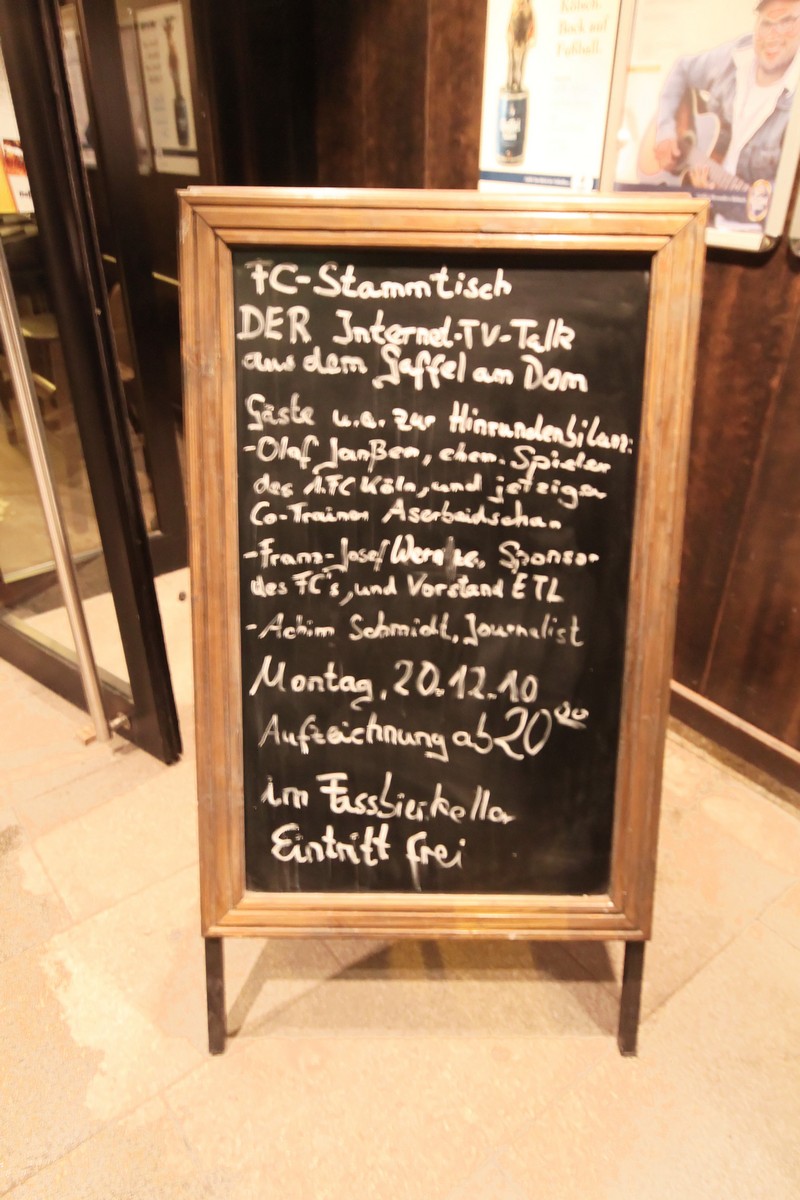 Kölsch.
Bock auf
Fußball.
FC-Stammtisch
DER Internet-TV-Talk
aus dem Gaffel am Dom
Gäste u.a. zur Hinrundenbilanz:
-Olaf Janßen, ehem. Spieler
des 1.FC Köln, und jetziger
Co-Trainer Aserbaidschan
-Franz-Josef Wernze, Sponsor
des FC's, und Vorstand ETL
-Achim Schmidt, Journalist
Montag, 20.12.10
Aufzeichnung ab 20 00
im Fassbierkeller
Eintritt frei